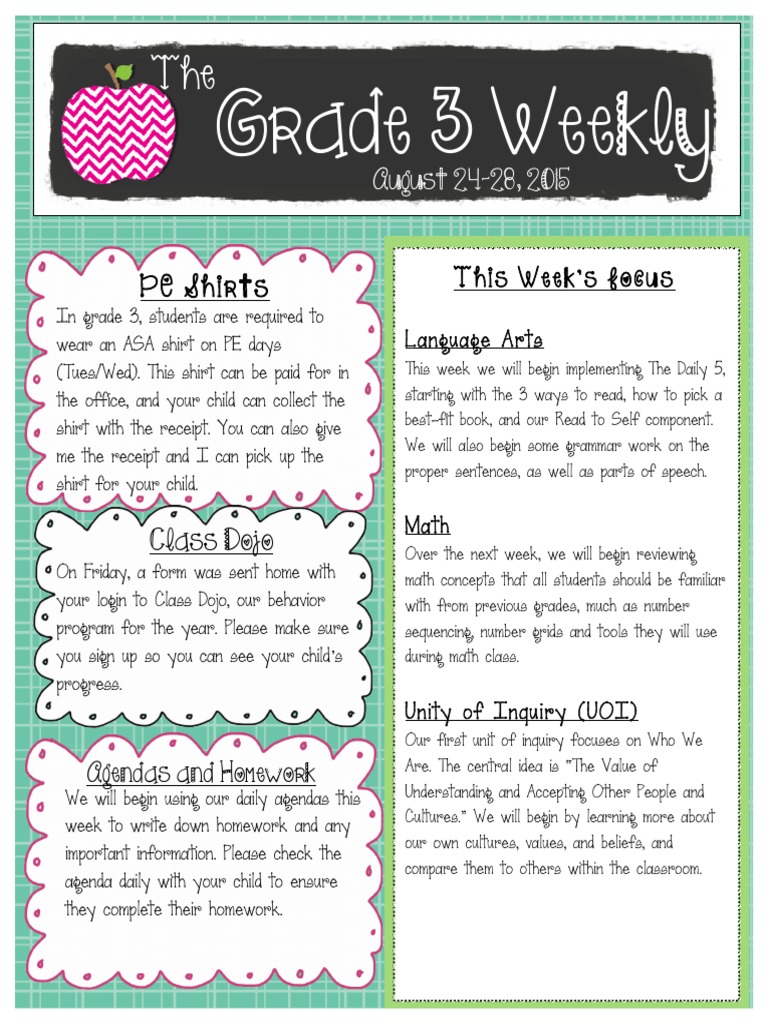 The
Grade 3 Weekly
August 24-28, 2015
PE Shirts
In grade 3, students are required to
wear an ASA shirt on PE days
(Tues/Wed). This shirt can be paid for in
the office, and your child can collect the
shirt with the receipt. You can also give
me the receipt and I can pick up the
shirt for your child.
Class Dojo
On Friday, a form was sent home with
your login to Class Dojo, our behavior
program for the year. Please make sure
you sign up so you can see your child's
progress.
Agendas and Homework
We will begin using our daily agendas this
week to write down homework and any
important information. Please check the
agenda daily with your child to ensure
they complete their homework.
This Week's focus
Language Arts
This week we will begin implementing The Daily 5,
starting with the 3 ways to read, how to pick a
best-fit book, and our Read to Self component.
We will also begin some grammar work on the
proper sentences, as well as parts of speech.
Math
Over the next week, we will begin reviewing
math concepts that all students should be familiar
with from previous grades, much as number
sequencing, number grids and tools they will use
during math class.
Unity of Inquiry (UOI)
Our first unit of inquiry focuses on Who We
Are. The central idea is "The Value of
Understanding and Accepting Other People and
Cultures." We will begin by learning more about
our own cultures, values, and beliefs, and
compare them to others within the classroom.